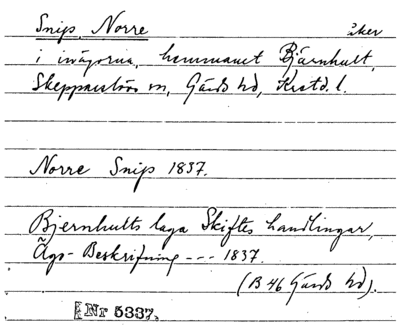 Snip, Norre åker
i inägorna, hemmanet Bjärnhult,
Skepparslövs sn, Gärds hd, Krstd. l.
Norre Snip 1837.
Bjernhults laga Skiftes handlingar,
Ägo-Beskrifning --- 1837.
(B 46 Gärds hd).
Nr 5337.